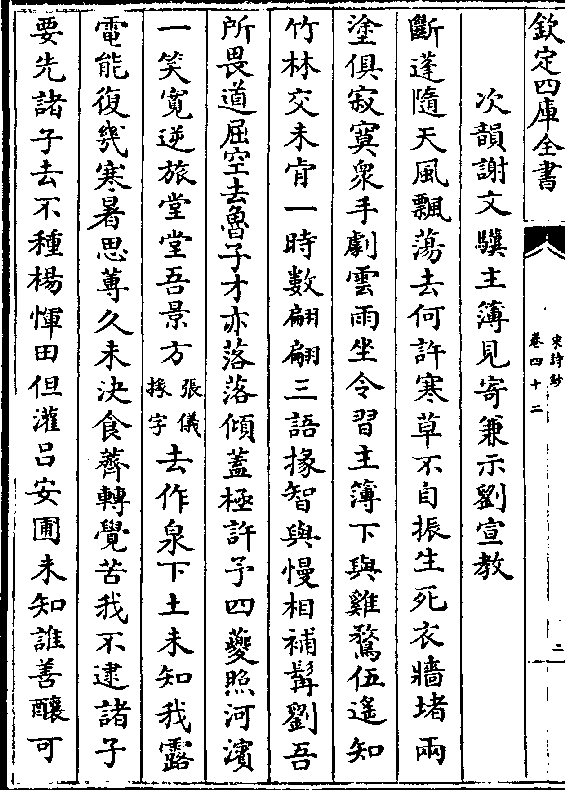 欽定四庫全書
宋詩鈔
卷四十二
二
次韻謝文驥主簿見寄兼示劉宣教
斷蓬隨天風飄蕩去何許寒草不自振生死衣牆堵兩
塗俱寂寞衆手劇雲雨坐令習主簿下與雞鶩伍遙知
竹林交未肯一時數翩翩三語掾智與慢相補髯劉吾
所畏道屈空去魯子才亦落落傾蓋極許予四夔照河濱
一笑寛逆旅堂堂吾景方張儀掾字去作泉下土未知我露
電能復幾寒暑思蓴久未決食薺轉覺苦我不逮諸子
要先諸子去不種楊惲田但灌吕安圃未知誰善釀可